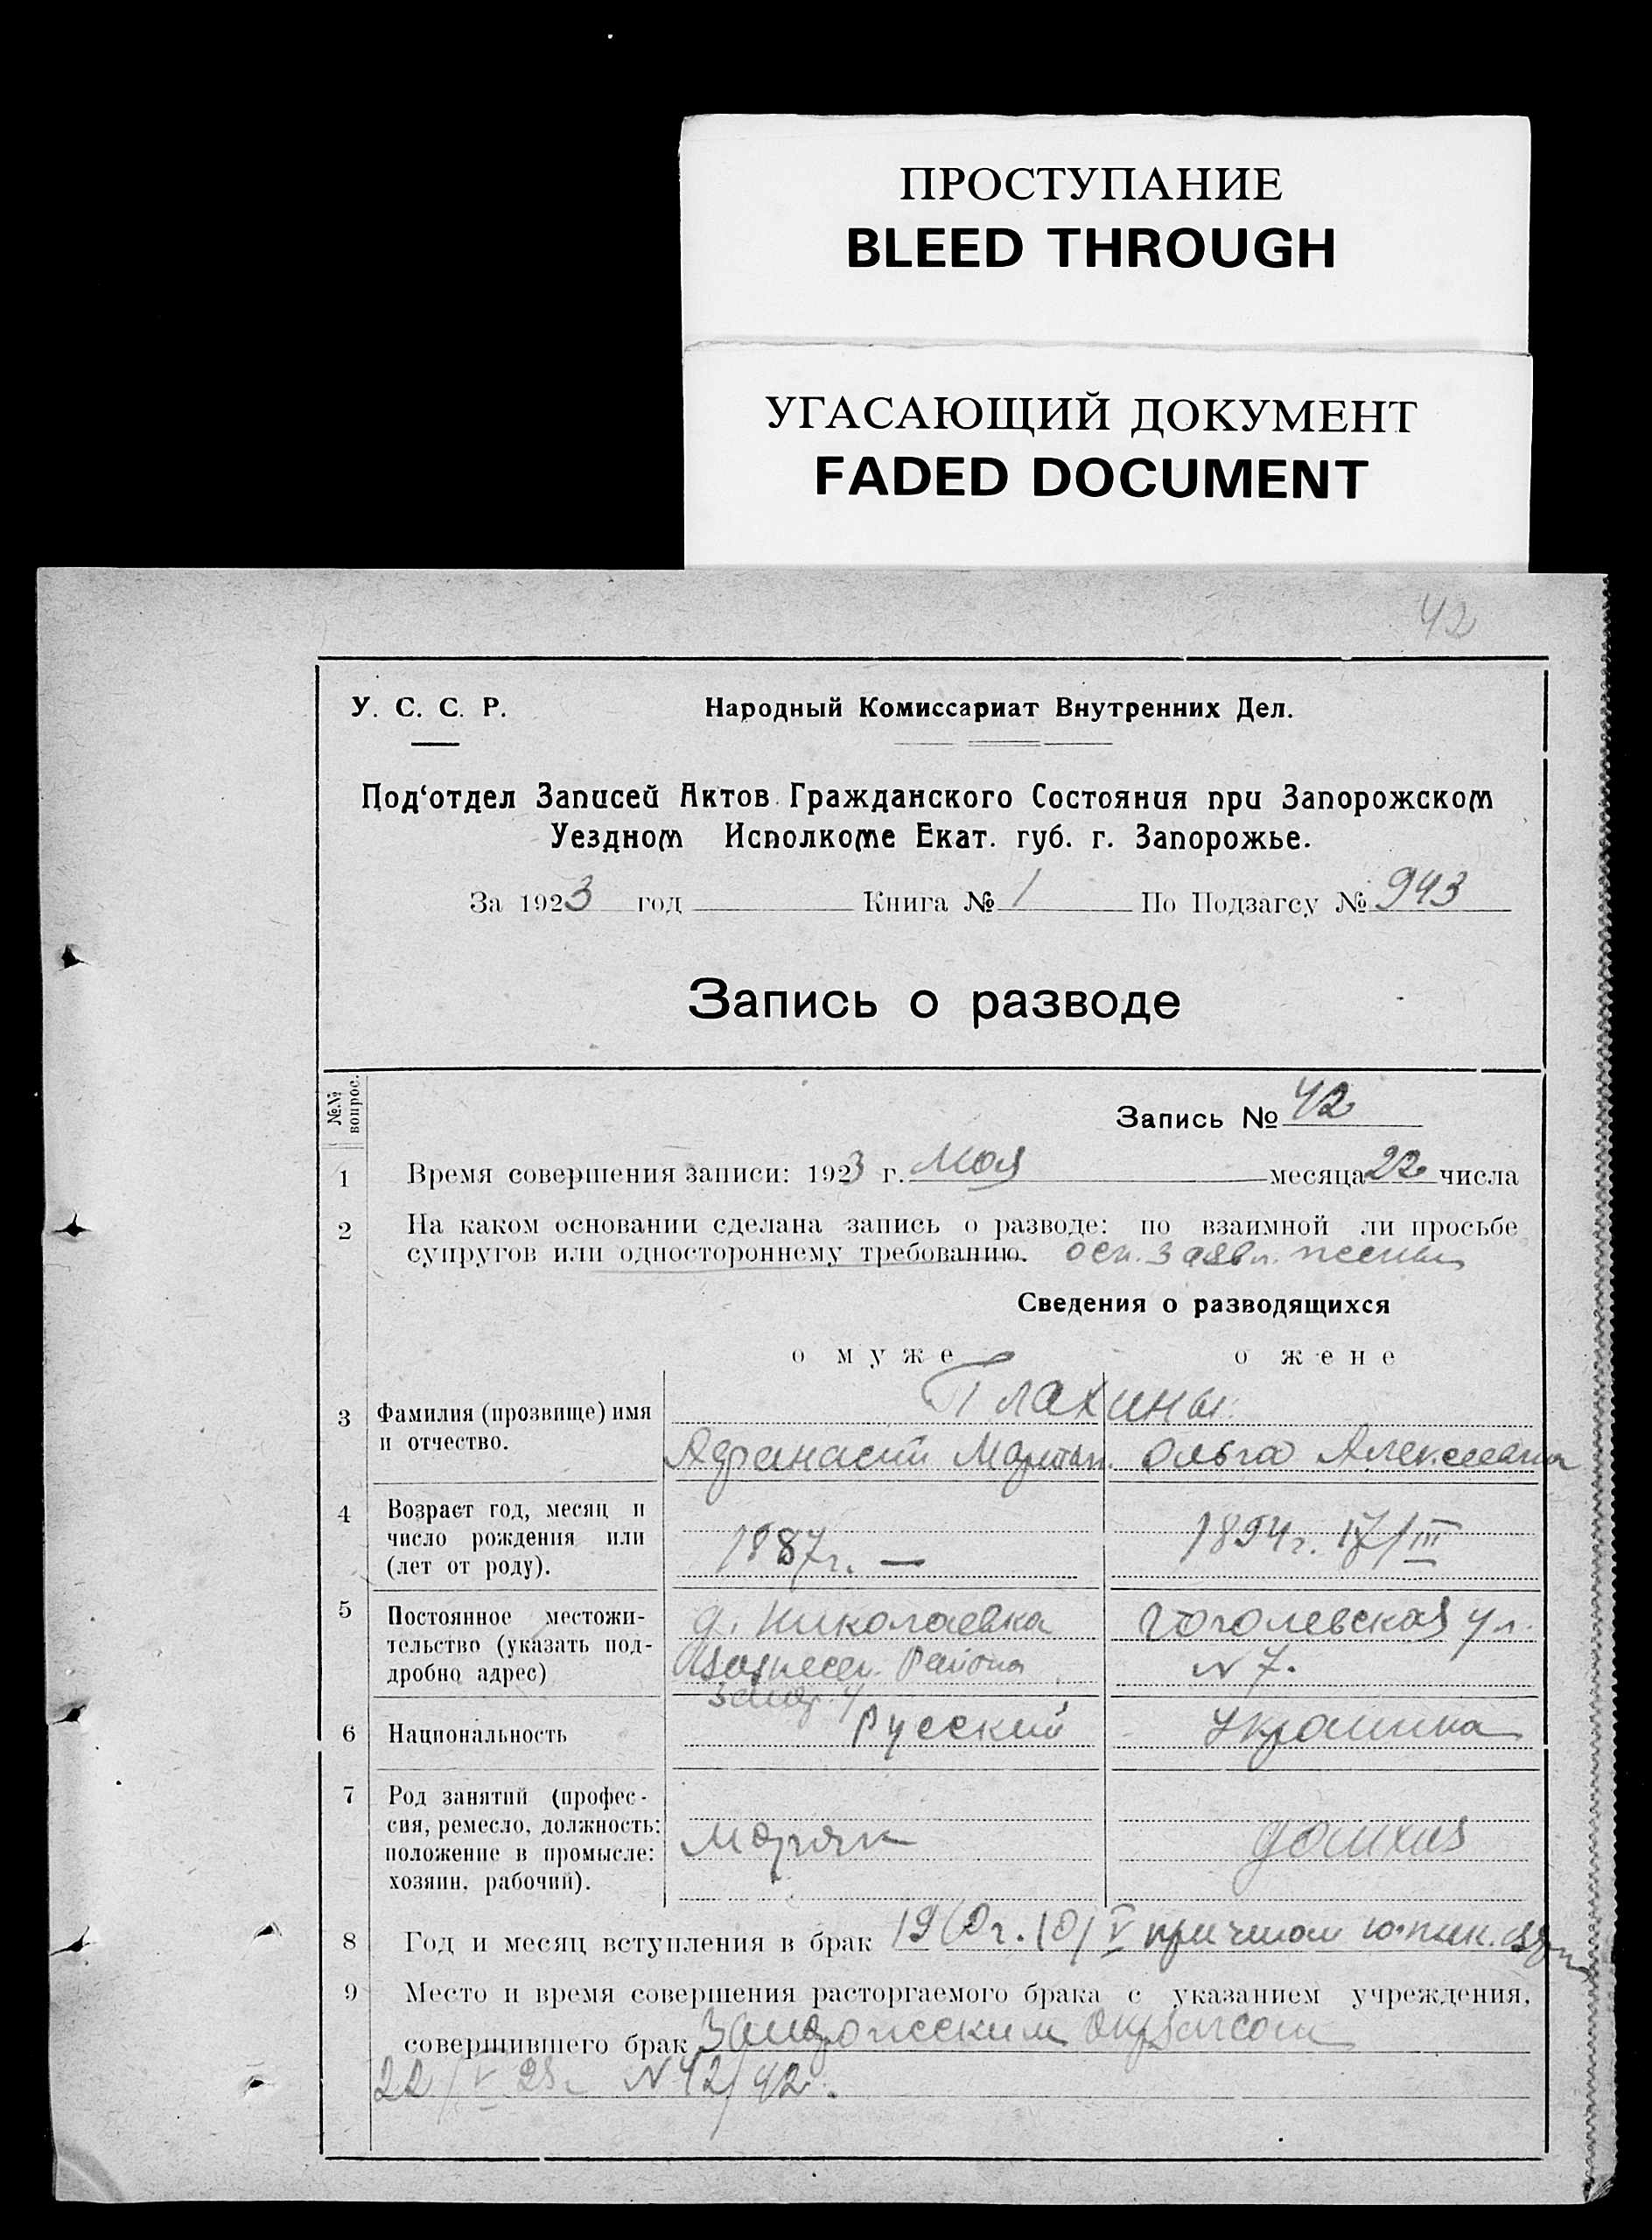 ПРОСТУПАНИЕ
BLEED THROUGH
УГАСАЮЩИЙ ДОКУМЕНТ
FADED DOCUMENT
42
У. С. С. Р.
Народный Комиссариат Внутренних Дел.
Под‘отдел Записей Актов Гражданского Состояния при Запорожском
Уездном Исполкоме Екат. губ. г. Запорожье.
За 1923 год Книга № 1 По Подзагсу № 943
Запись о разводе
№№ вопрос.
Запись № 42
1 Время совершения записи: 1923 г. Мая месяца 22 числа
2 На каком основании сделана запись о разводе: по взаимной ли просьбе
супругов или одностороннему требованию. осн. заявл. жены
Сведения о разводящихся
о муже о жене
Плахины
3 Фамилия (прозвище) имя
и отчество.
Афанасий Мартын. Ольга
4 Возраст год, месяц и
число рождения или
(лет от роду).
1887г. — 1894г. 17/III
5 Постоянное местожи-
тельство (указать под-
дробно адрес)
д. Николаевка Гоголевская ул.
Района N 7.
6 Национальность Русский Украинка
7 Род занятий (профес-
сия, ремесло, должность:
положение в промысле:
хозяин, рабочий).
Моряк
8 Год и месяц вступления в брак
9 Место и время совершения расторгаемого брака с указанием учреждения,
совершившего брак Запорожским
22/V N 42/42.